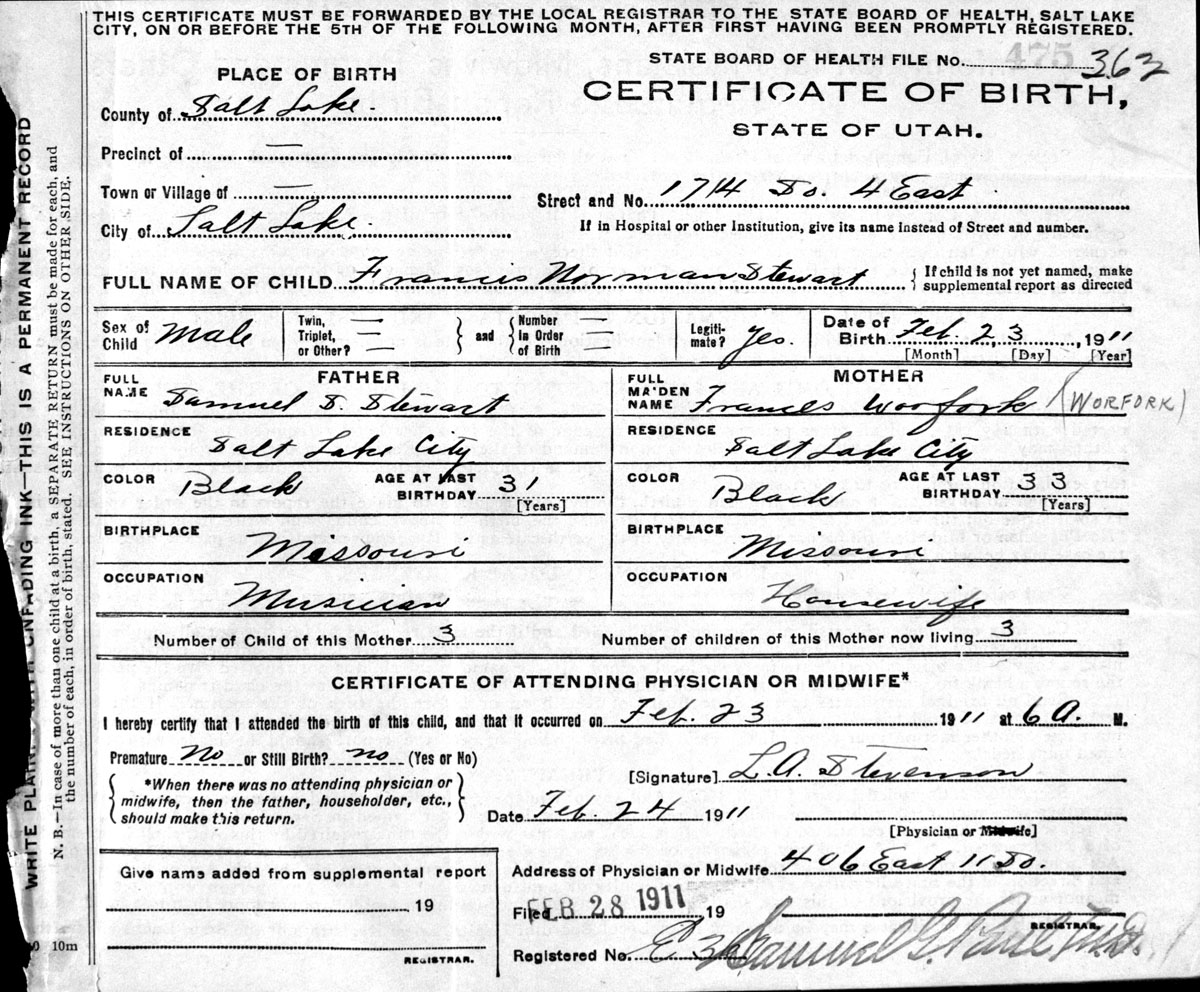 THIS CERTIFICATE MUST BE FORWARDED BY THE LOCAL REGISTRAR TO THE STATE BOARD OF HEALTH, SALT LAKE
CITY, ON OR BEFORE THE 5TH OF THE FOLLOWING MONTH, AFTER FIRST HAVING BEEN PROMPTLY REGISTERED.
STATE BOARD OF HEALTH FILE No. 475 363
PLACE OF BIRTH
CERTIFICATE OF BIRTH,
STATE OF UTAH.
County of Salt Lake.
Precinct of —
Town or Village of —
Street and No. 1714 So. 4 East
City of Salt Lake.
If in Hospital or other Institution, give its name instead of Street and number.
FULL NAME OF CHILD Francis Norman Stewart { If child is not yet named, make
supplemental report as directed
Sex of Child Male
Twin, Triplet, or Other? —
and
Number in Order of Birth —
Legiti-mate? Yes.
Date of Birth Feb. 23, 1911
[Month] [Day] [Year]
FATHER
FULL NAME Samuel S. Stewart
MOTHER
FULL MAIDEN NAME Frances Worfork (WORFORK)
RESIDENCE Salt Lake City
RESIDENCE Salt Lake City
COLOR Black AGE AT LAST BIRTHDAY 31 [Years]
COLOR Black AGE AT LAST BIRTHDAY 33 [Years]
BIRTHPLACE Missouri
BIRTHPLACE Missouri
OCCUPATION Musician
OCCUPATION Housewife
Number of Child of this Mother 3
Number of children of this Mother now living 3
CERTIFICATE OF ATTENDING PHYSICIAN OR MIDWIFE*
I hereby certify that I attended the birth of this child, and that it occurred on Feb. 23 1911 at 6 A. M.
Premature No or Still Birth? no (Yes or No)
*When there was no attending physician or
midwife, then the father, householder, etc.,
should make this return.
[Signature] L.A. Stevenson
Date Feb. 24 1911
[Physician or Midwife]
Give name added from supplemental report
19
REGISTRAR.
Address of Physician or Midwife 406 East 11 So.
Filed FEB 28 1911 19
REGISTRAR.
Registered No.
WRITE PLAINLY WITH UNFADING INK—THIS IS A PERMANENT RECORD
N. B.—In case of more than one child at a birth, a SEPARATE RETURN must be made for each, and
the number of each, in order of birth, stated. SEE INSTRUCTIONS ON OTHER SIDE.
10m